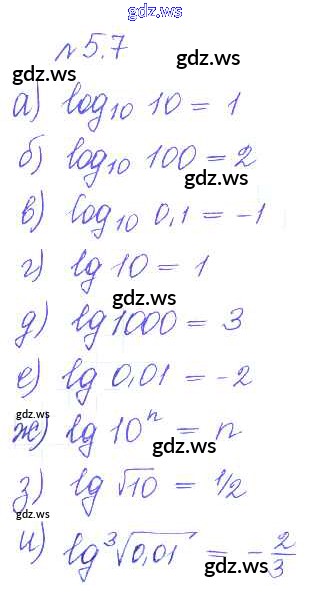 gdz.ws
№5.7
gdz.ws
gdz.ws
а) log₁₀ 10 = 1
б) log₁₀ 100 = 2
gdz.ws
в) log₁₀ 0,1 = -1
gdz.ws
г) lg 10 = 1
gdz.ws
д) lg 1000 = 3
е) lg 0,01 = -2
gdz.ws
gdz.ws
ж) lg 10ⁿ = n
з) lg √10 = 1/2
gdz.ws
gdz.ws
и) lg ³√0,01 = -2/3
gdz.ws